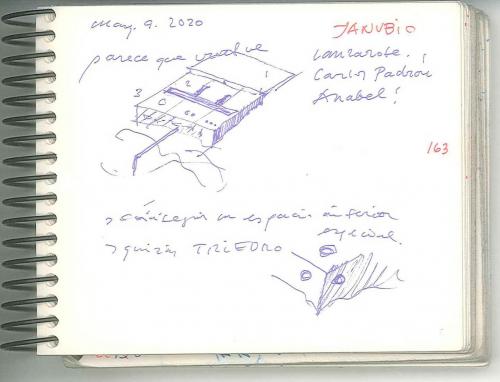 may. 9. 2020
JANUBIO
parece que vuelve
Lanzarote.
Carlos Padrón
Anabel!
1
2
3
C
163
un espacio interior
especial.
> quizás TRIEDRO